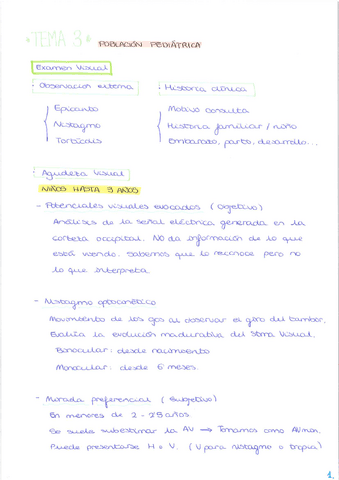 TEMA 3 · POBLACIÓN PEDIÁTRICA
Examen Visual
· Observación externa · Historia clínica
Epicanto Motivo consulta
Nistagmo Historia familiar / niño
Tortícolis Embarazo, parto, desarrollo...
· Agudeza Visual
NIÑOS HASTA 3 AÑOS
- Potenciales visuales evocados (Objetivo)
Análisis de la señal eléctrica generada en la
corteza occipital. NO da información de lo que
está viendo. Sabemos que lo reconoce pero no
lo que interpreta.
- Nistagmo optocinético
Movimiento de los ojos al observar el giro del tambor.
Evalúa la evolución madurativa del Stma Visual.
Binocular: desde nacimiento
Monocular: desde 6 meses.
- Mirada preferencial (Subjetivo)
En menores de 2 - 2'5 años
Se suele subestimar la AV → Tomamos como AVmin.
Puede presentarse H o V. (V para nistagmo o tropia)
1.